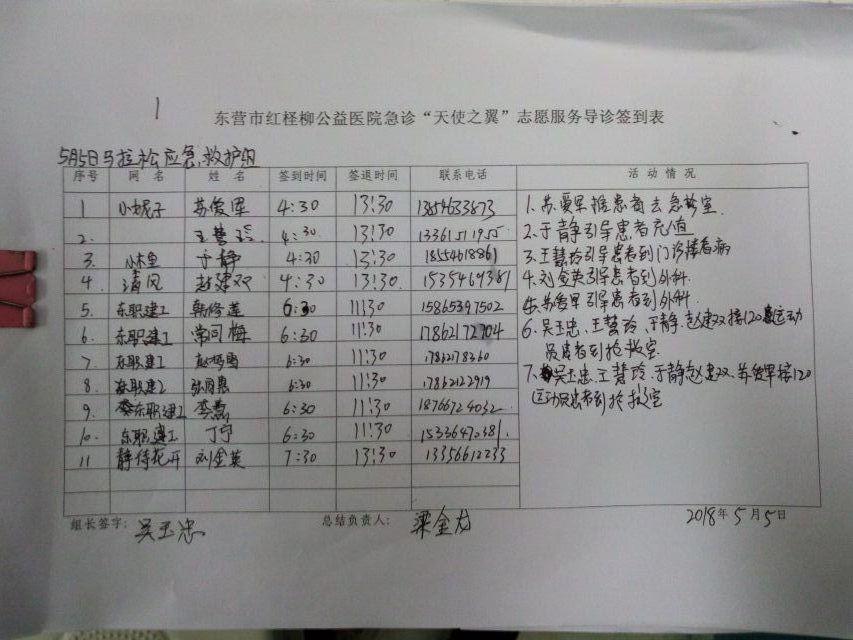 1
东营市红柽柳公益医院急诊“天使之翼”志愿服务导诊签到表
5月5日马拉松应急救护组
序号 网名 姓名 签到时间 签退时间 联系电话 活动情况
1 小妮子 苏爱军 4:30 13:30
2. 王慧玲 4:30 13:30 13361511955
3. 于静 4:30 13:30 18554618861
4. 清风 赵建双 4:30 13:30 1535469381
5. 东职建工 韩修莲 6:30 11:30 15865397502
6. 东职建工 常可梅 6:30 11:30 17862172704
7. 东职建工 6:30 11:30 17862178360
8. 东职建工 6:30 11:30 17862122919
9. 东职建工 李慧 6:30 11:30 18766724032
10. 东职建工 丁宁 6:30 11:30
11 静待花开 刘金英 7:30 13:30 13356612233
1. 苏爱军推患者去急诊室.
2. 于静引导患者充值
3. 王慧玲引导患者到门诊楼看病
4. 刘金英引导患者到外科.
5. 苏爱军引导患者到外科.
6. 吴玉忠、王慧玲、于静.赵建双接120运动
员患者到抢救室.
7. 吴玉忠、王慧玲、于静赵建双、苏爱军接120
运动员患者到抢救室
组长签字: 吴玉忠 总结负责人: 梁金龙 2018年5月5日